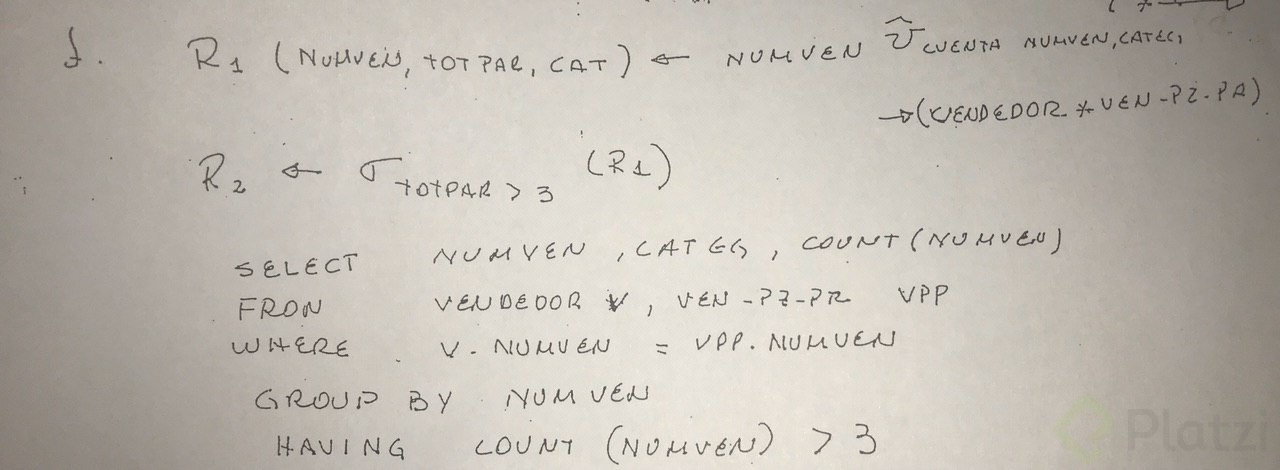 f. R1 (NUMVEN, TOTPAR, CAT) ← NUMVEN CUENTA NUMVEN, CATEG,
→ (VENDEDOR * VEN-PZ-PA)
R2 ← σ TOTPAR > 3 (R1)
SELECT NUMVEN, CATEG, COUNT(NUMVEN)
FRON VENDEDOR V, VEN-PZ-PR VPP
WHERE V.NUMVEN = VPP.NUMVEN
GROUP BY NUMVEN
HAVING COUNT (NUMVEN) > 3
Platzi